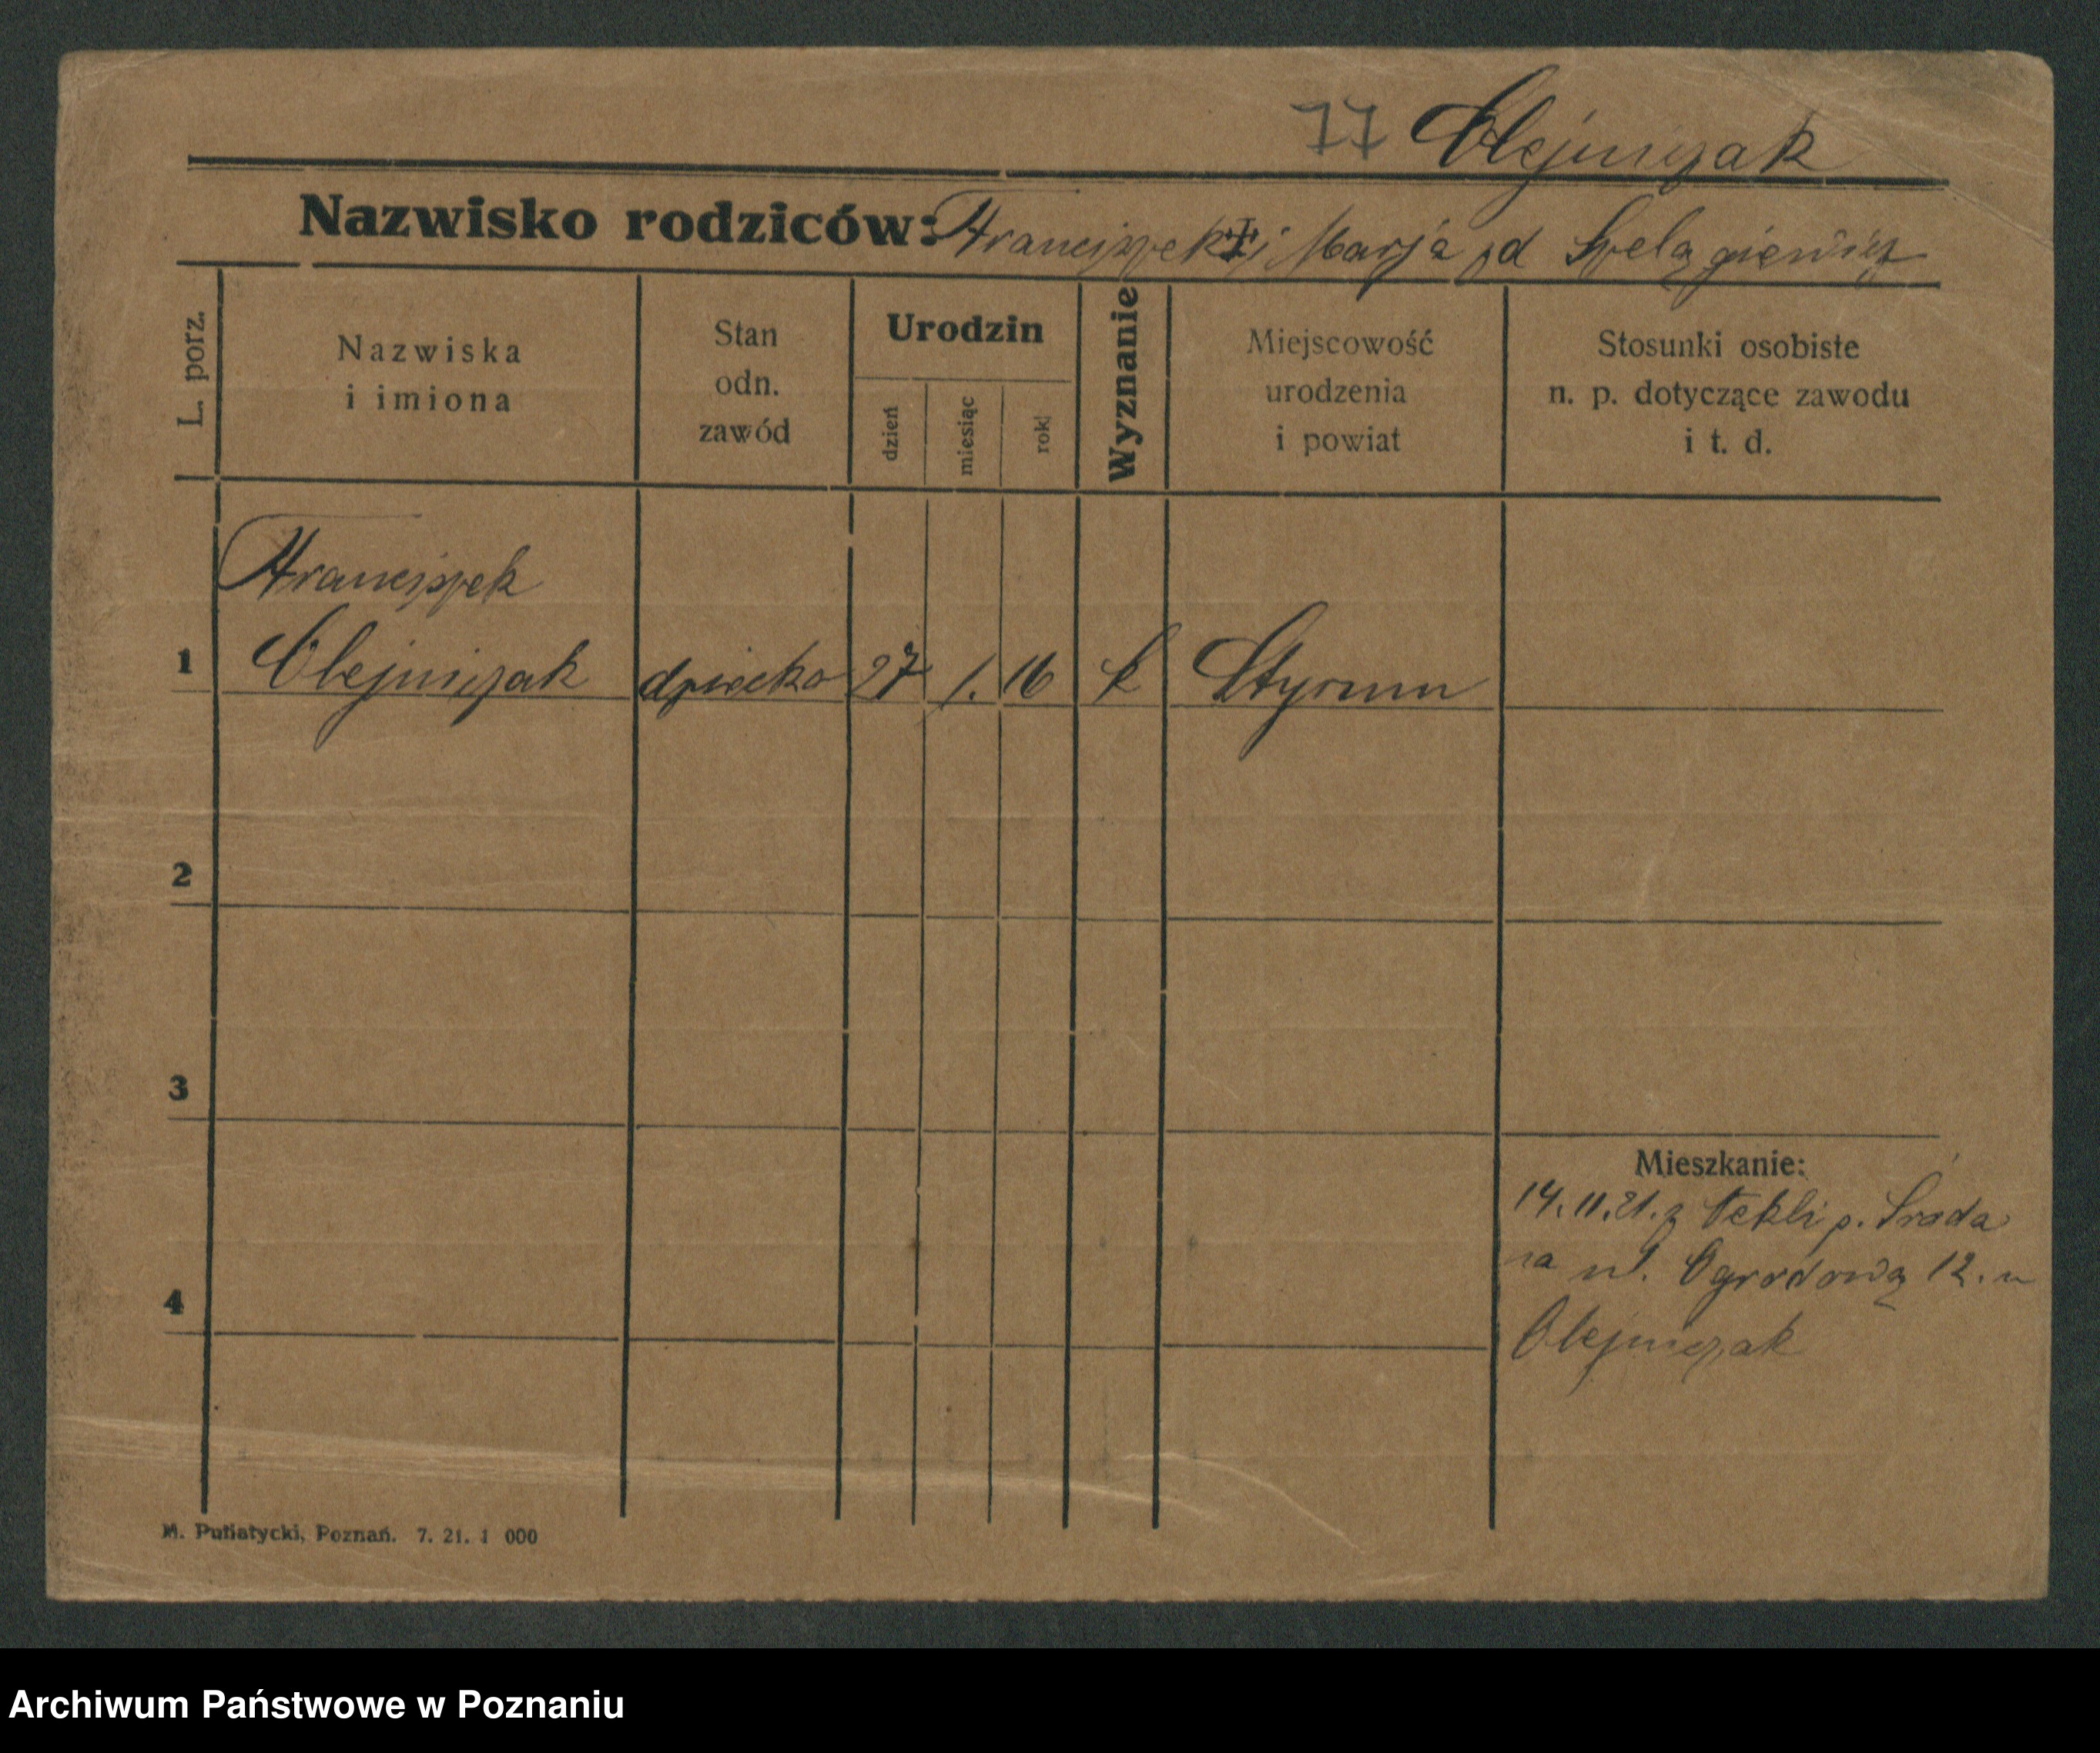 77 Olejniczak
Nazwisko rodziców: Franciszek i Marja zd Szelągiewicz
L. porz.
Nazwiska
i imiona
Stan
odn.
zawód
Urodzin
dzień
miesiąc
rok
Wyznanie
Miejscowość
urodzenia
i powiat
Stosunki osobiste
n. p. dotyczące zawodu
i t. d.
Franciszek
1 Olejniczak dziecko 27 1. 16 k Styrum
2
3
Mieszkanie:
14.11.21. z Nekli p. Środa
na ul. Ogrodową 12. u
4
Olejniczak
M. Putiatycki, Poznań. 7. 21. 1 000
Archiwum Państwowe w Poznaniu